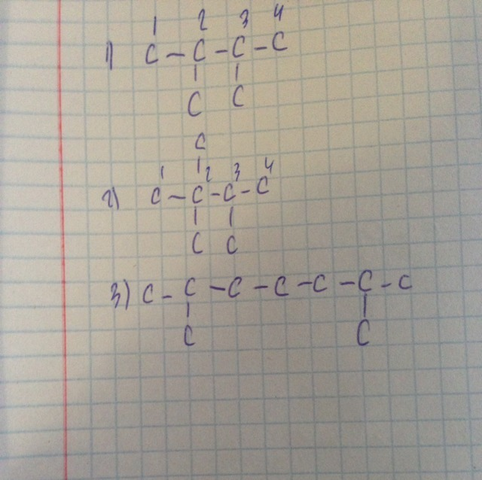 1 2 3 4
1) C - C - C - C
C C
C
1 2 3 4
2) C - C - C - C
C C
3) C - C - C - C - C - C - C
C C